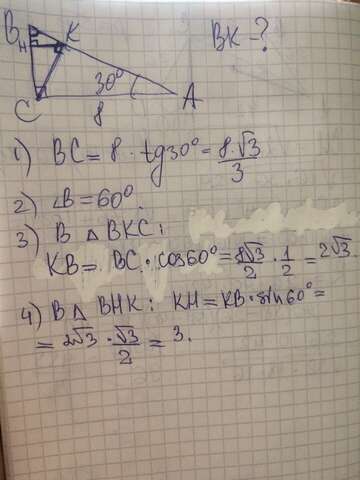 B K BK - ?
H
30°
C 8 A
1) BC = 8 · tg30° = 8·√3/3
2) ∠B = 60°.
3) В △ BKC:
KB = BC · cos60° = 8√3/2 · 1/2 = 2√3.
4) В △ BHK: KH = KB · sin60° =
= 2√3 · √3/2 = 3.